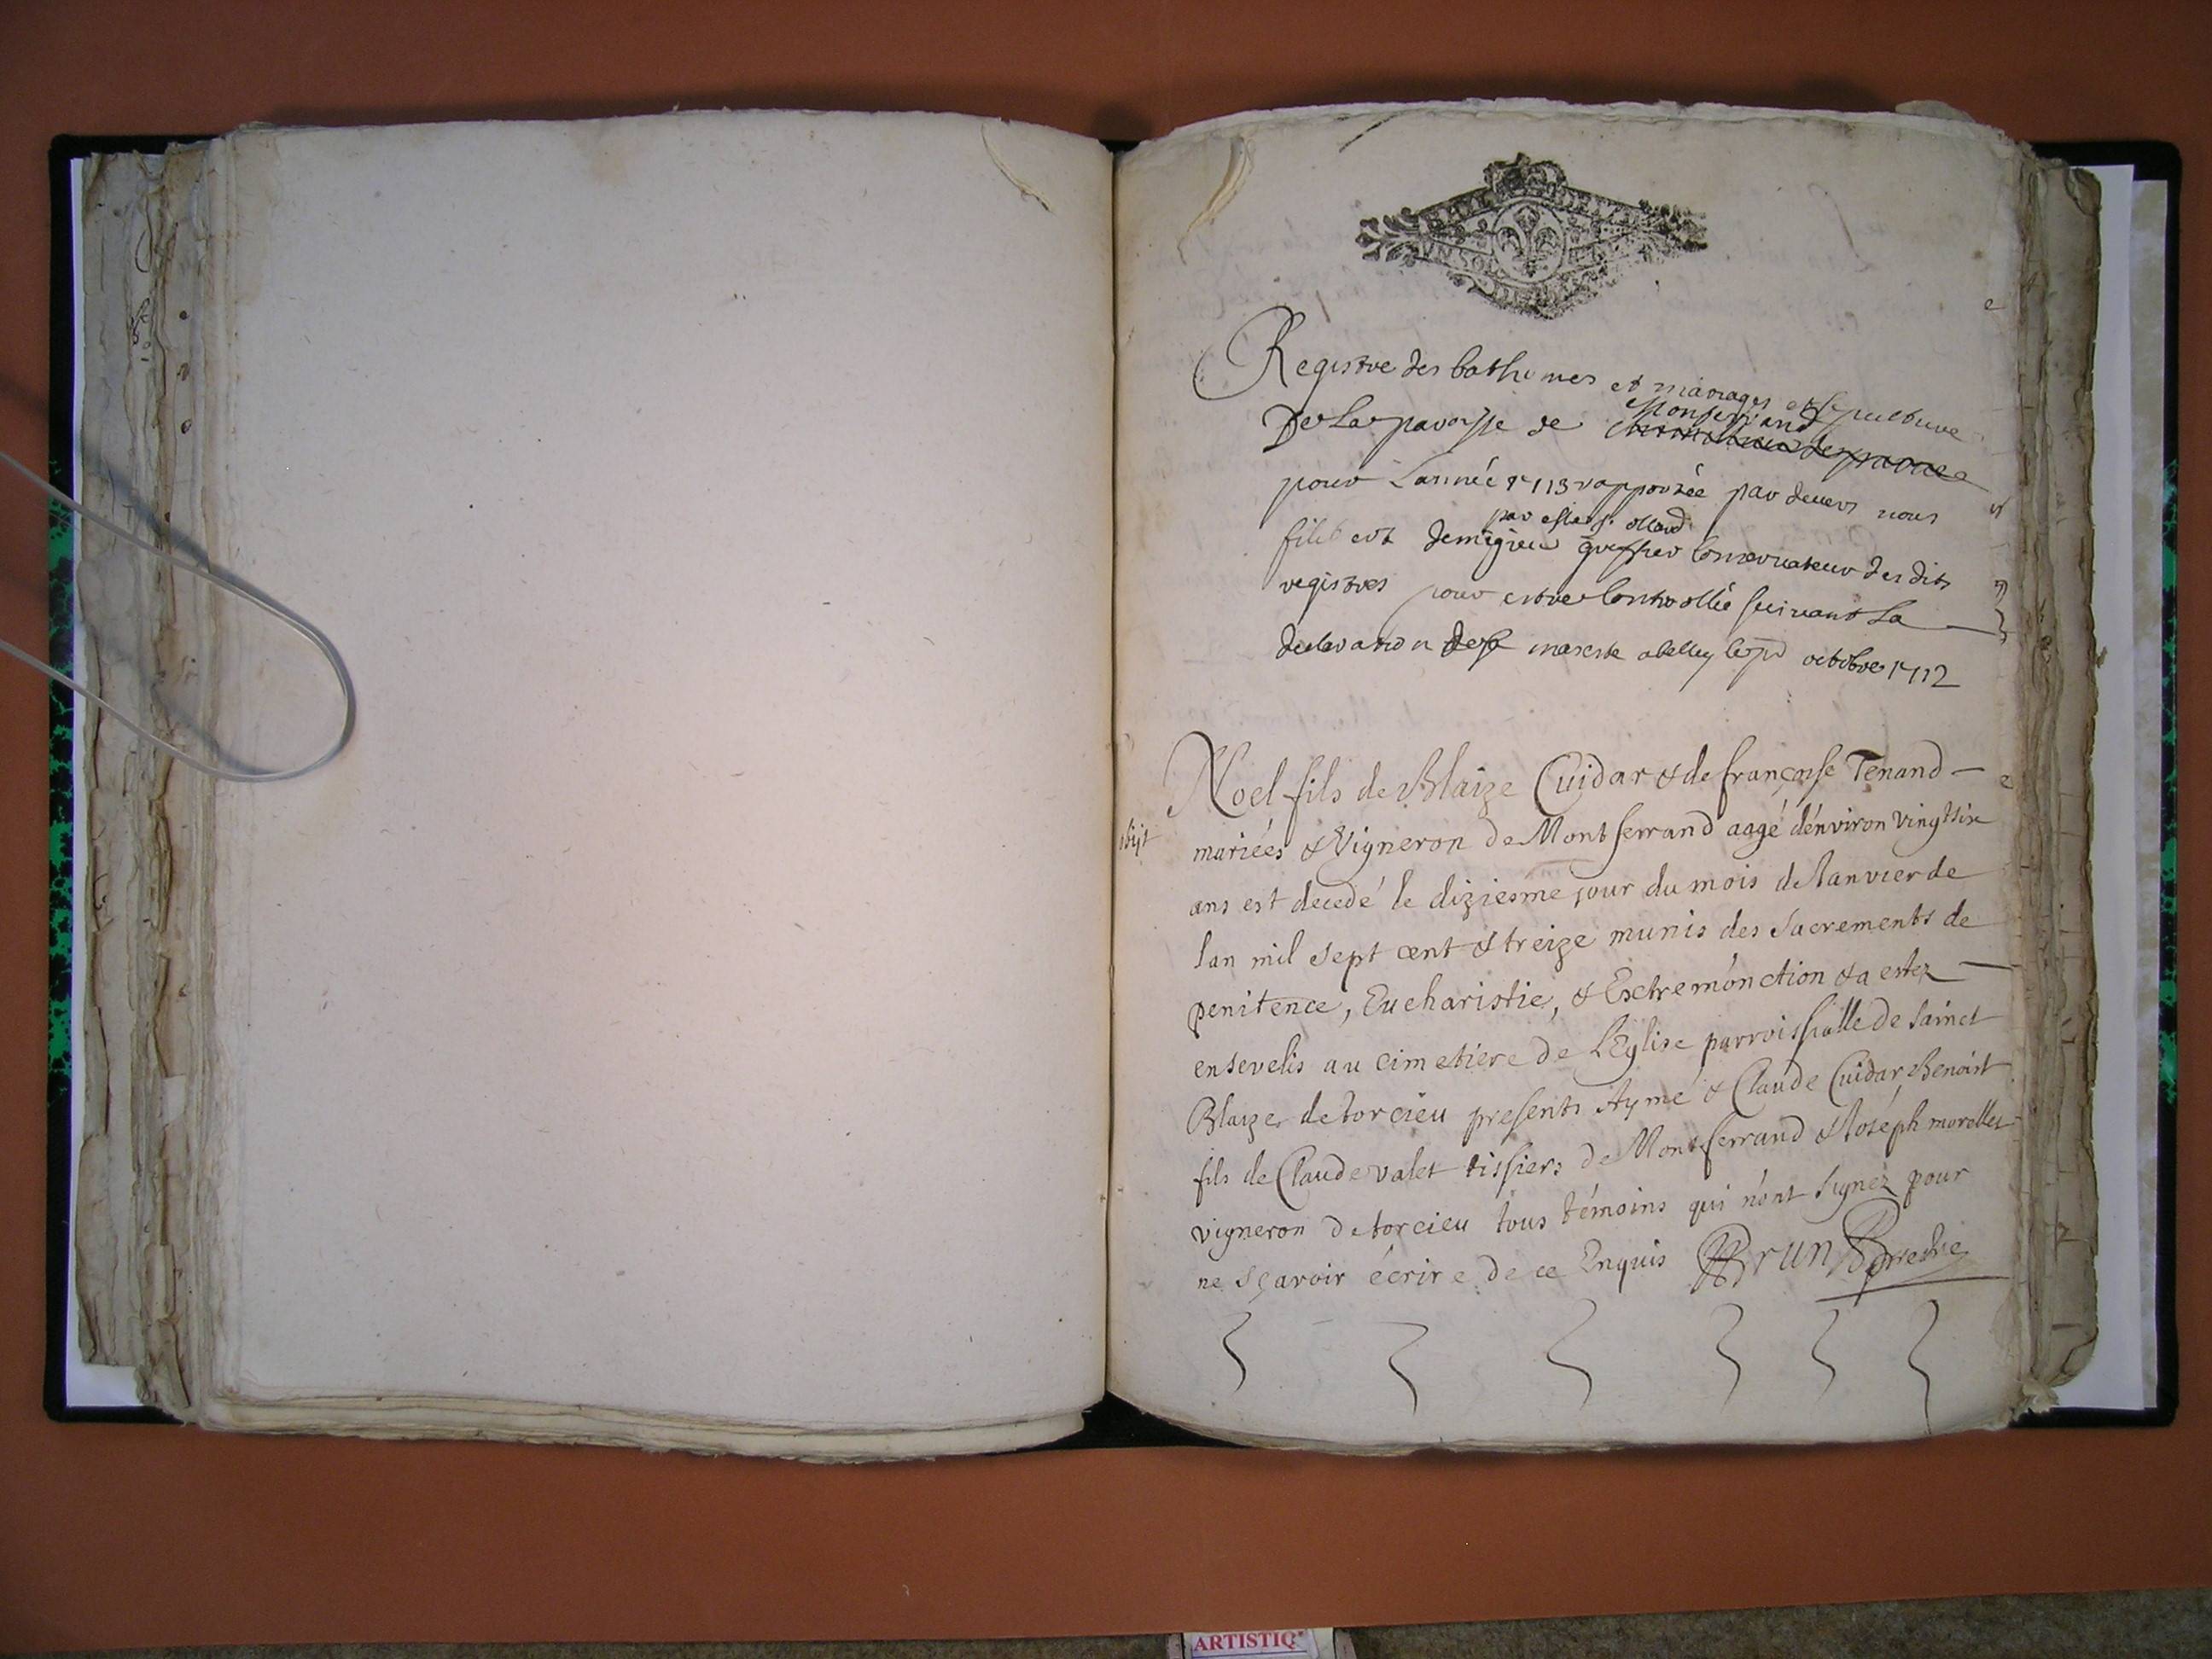 Registre des bathemes et mariages et sepulture
De La paroisse de Monferrand
pour Lannée 1713 rapportée par devers nous
par
filibert demigieu greffier Conservateur des dits
registres pour estre Controllée suivant La
declaration de sa maieste octobre 1712
Noel fils de Blaize Cuidar & de françoise Tenand
mariées & Vigneron de Montferrand aagé dénviron vingt six
ans est decedé le diziesme jour du mois de Janvier de
lan mil sept cent & treize munis des Sacrements de
penitence, Eucharistie, & Extremónction & a estez
ensevelis au cimetiere de l'Eglise parroissialle de Sainct
Blaize de torcieu presents Aymé & Claude Cuidar, Benoist
fils de Claude valet tissiers de Montferrand & Joséph morellet
vigneron de torcieu tous témoins qui nónt signez pour
ne sçavoir écrire de ce Enquis Brun
ARTISTIQ